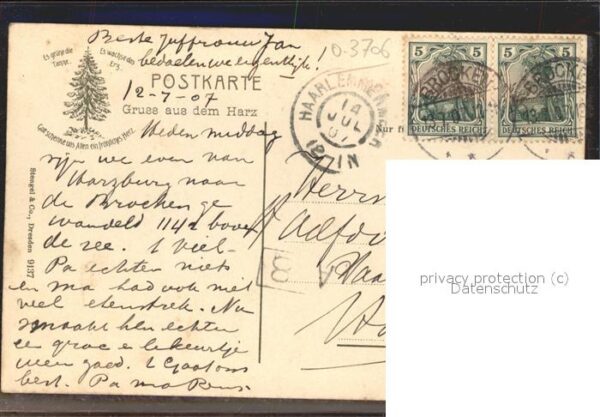 Beste Juffrouw Jan
bedoelen we eigenlijk!
0-3706
Es grüne die Tanne,
Es wachse das Erz,
Gott schenke uns Allen ein fröhliches Herz.
POSTKARTE
12-7-07
Gruss aus dem Harz
HAARLEM
14
JUL
07
12 IN
5 5
DEUTSCHES REICH
5 5
DEUTSCHES REICH
BROCKEN
BROCKEN
Nur f
Heden middag
zijn we even van
Harzburg naar
de Brocken ge
wandeld 1142 boven
de zee. t viel
Pa echter niets
en ma had ook niet
veel etenstrek. Nu
smaakt hen echter
een groc e likeurtje
weer goed. t Gaat ons
best. Pa ma
Stengel & Co., Dresden 9137
Herrn
privacy protection (c)
Datenschutz